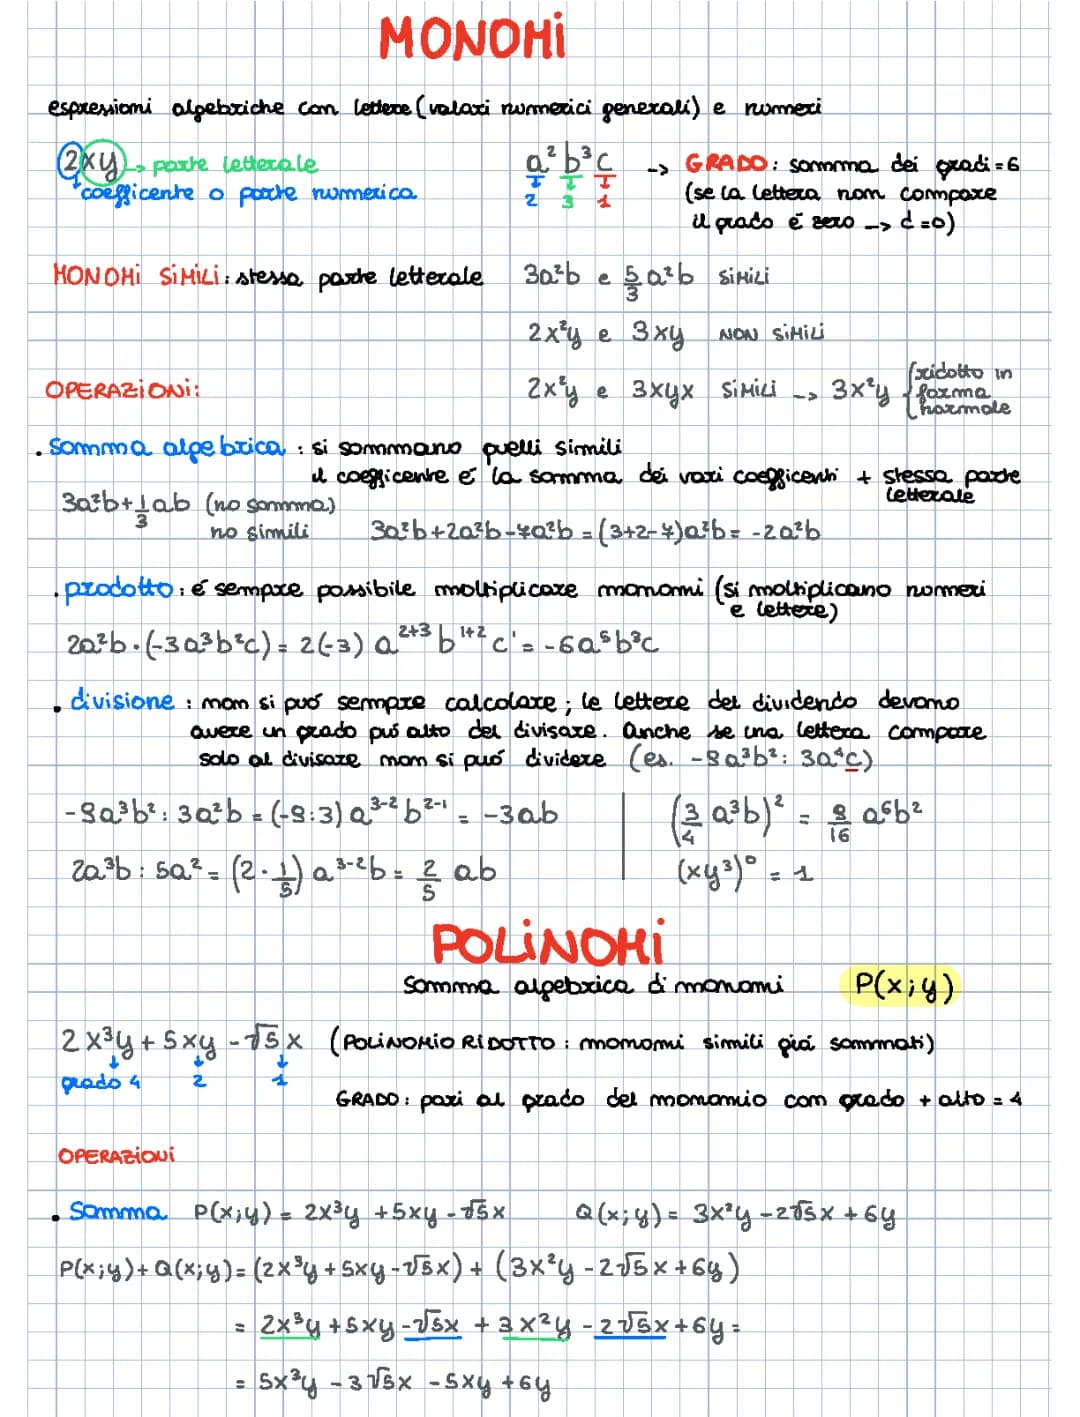 MONOMI
espressioni algebriche con lettere (valori numerici generali) e numeri
2xy → parte letterale
coefficente o parte numerica
a² b³ c → GRADO: somma dei gradi = 6
2 3 1
(se la lettera non compare
il grado é zero → d = 0)
MONOMI SIMILI: stessa parte letterale 3a²b e 5/3 a²b SIMILI
2x²y e 3xy NON SIMILI
OPERAZIONI: 2x²y e 3xyx SIMILI → 3x²y {ridotto in forma normale
. somma algebrica : si sommano quelli simili
il coefficente é la somma dei vari coefficenti + stessa parte
letterale
3a²b + 1/3 ab (no somma)
no simili 3a²b + 2a²b - 7a²b = (3+2-7)a²b = -2a²b
. prodotto: é sempre possibile moltiplicare monomi (si moltiplicano numeri
e lettere)
2a²b · (-3a³b²c) = 2(-3) a²⁺³ b¹⁺² c¹ = -6a⁵b³c
. divisione : non si puó sempre calcolare; le lettere del dividendo devono
avere un grado piú alto del divisore. Anche se una lettera compare
solo al divisore non si puó dividere (es. -9a³b² : 3a⁴c)
-9a³b² : 3a²b = (-9:3) a³⁻² b²⁻¹ = -3ab
(3/4 a³b)² = 9/16 a⁶b²
2a³b : 5a² = (2 · 1/5) a³⁻²b = 2/5 ab
(xy³)⁰ = 1
POLINOMI
somma algebrica di monomi P(x;y)
2x³y + 5xy - √5x (POLINOMIO RIDOTTO : monomi simili giá sommati)
grado 4 2 1
GRADO: pari al grado del monomio con grado + alto = 4
OPERAZIONI
. Somma P(x;y) = 2x³y + 5xy - √5x Q(x;y) = 3x²y - 2√5x + 6y
P(x;y) + Q(x;y) = (2x³y + 5xy - √5x) + (3x²y - 2√5x + 6y)
= 2x³y + 5xy - √5x + 3x²y - 2√5x + 6y =
= 5x³y - 3√5x - 5xy + 6y